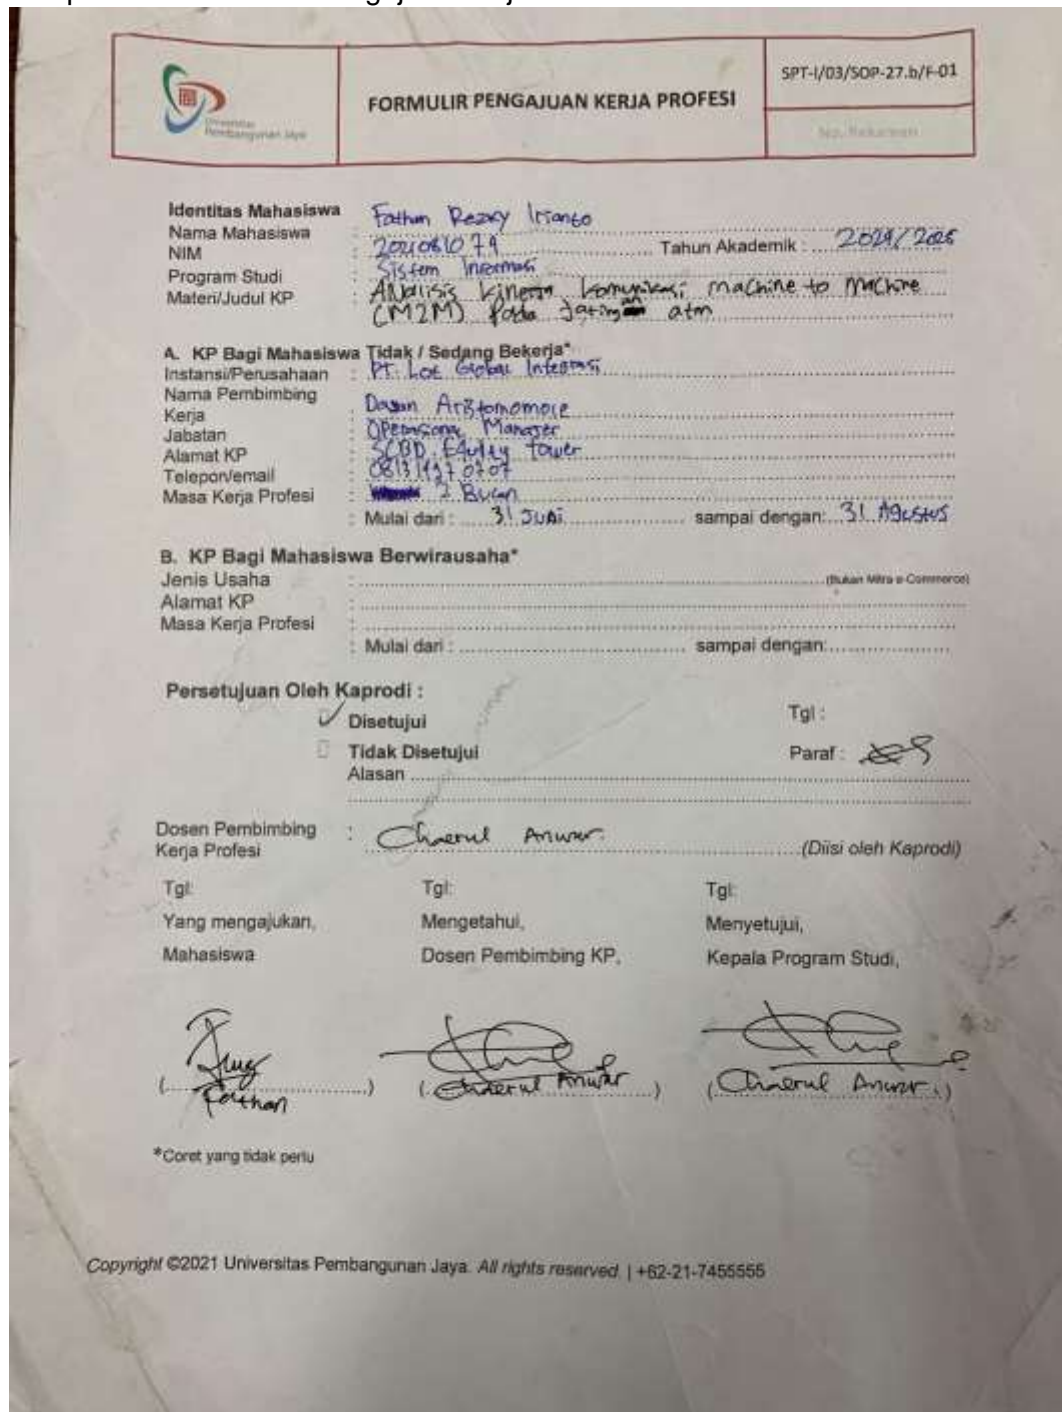 Universitas
Pembangunan Jaya
FORMULIR PENGAJUAN KERJA PROFESI
SPT-I/03/SOP-27.b/F-01
No. Rekaman
Identitas Mahasiswa
Nama Mahasiswa : Fathan Rezky Irianto
NIM : 2021081079 Tahun Akademik : 2024/2025
Program Studi : Sistem Informasi
Materi/Judul KP : Analisis Kinerja komunikasi machine to machine
(M2M) Pada Jaringan atm
A. KP Bagi Mahasiswa Tidak / Sedang Bekerja*
Instansi/Perusahaan : PT. Global Integrasi
Nama Pembimbing
Kerja :
Jabatan : Operasional Manager
Alamat KP : SCBD Equity tower
Telepon/email :
Masa Kerja Profesi : 2 Bulan
: Mulai dari : 31 sampai dengan: 31 Agustus
B. KP Bagi Mahasiswa Berwirausaha*
Jenis Usaha : (Bukan Mitra e-Commerce)
Alamat KP :
Masa Kerja Profesi :
: Mulai dari : sampai dengan:
Persetujuan Oleh Kaprodi :
Disetujui Tgl :
Tidak Disetujui Paraf :
Alasan
Dosen Pembimbing : Chaerul Anwar.
Kerja Profesi (Diisi oleh Kaprodi)
Tgl: Tgl: Tgl:
Yang mengajukan, Mengetahui, Menyetujui,
Mahasiswa Dosen Pembimbing KP, Kepala Program Studi,
(Fathan) (Chaerul Anwar) (Chaerul Anwar.)
*Coret yang tidak perlu
Copyright ©2021 Universitas Pembangunan Jaya. All rights reserved. | +62-21-7455555